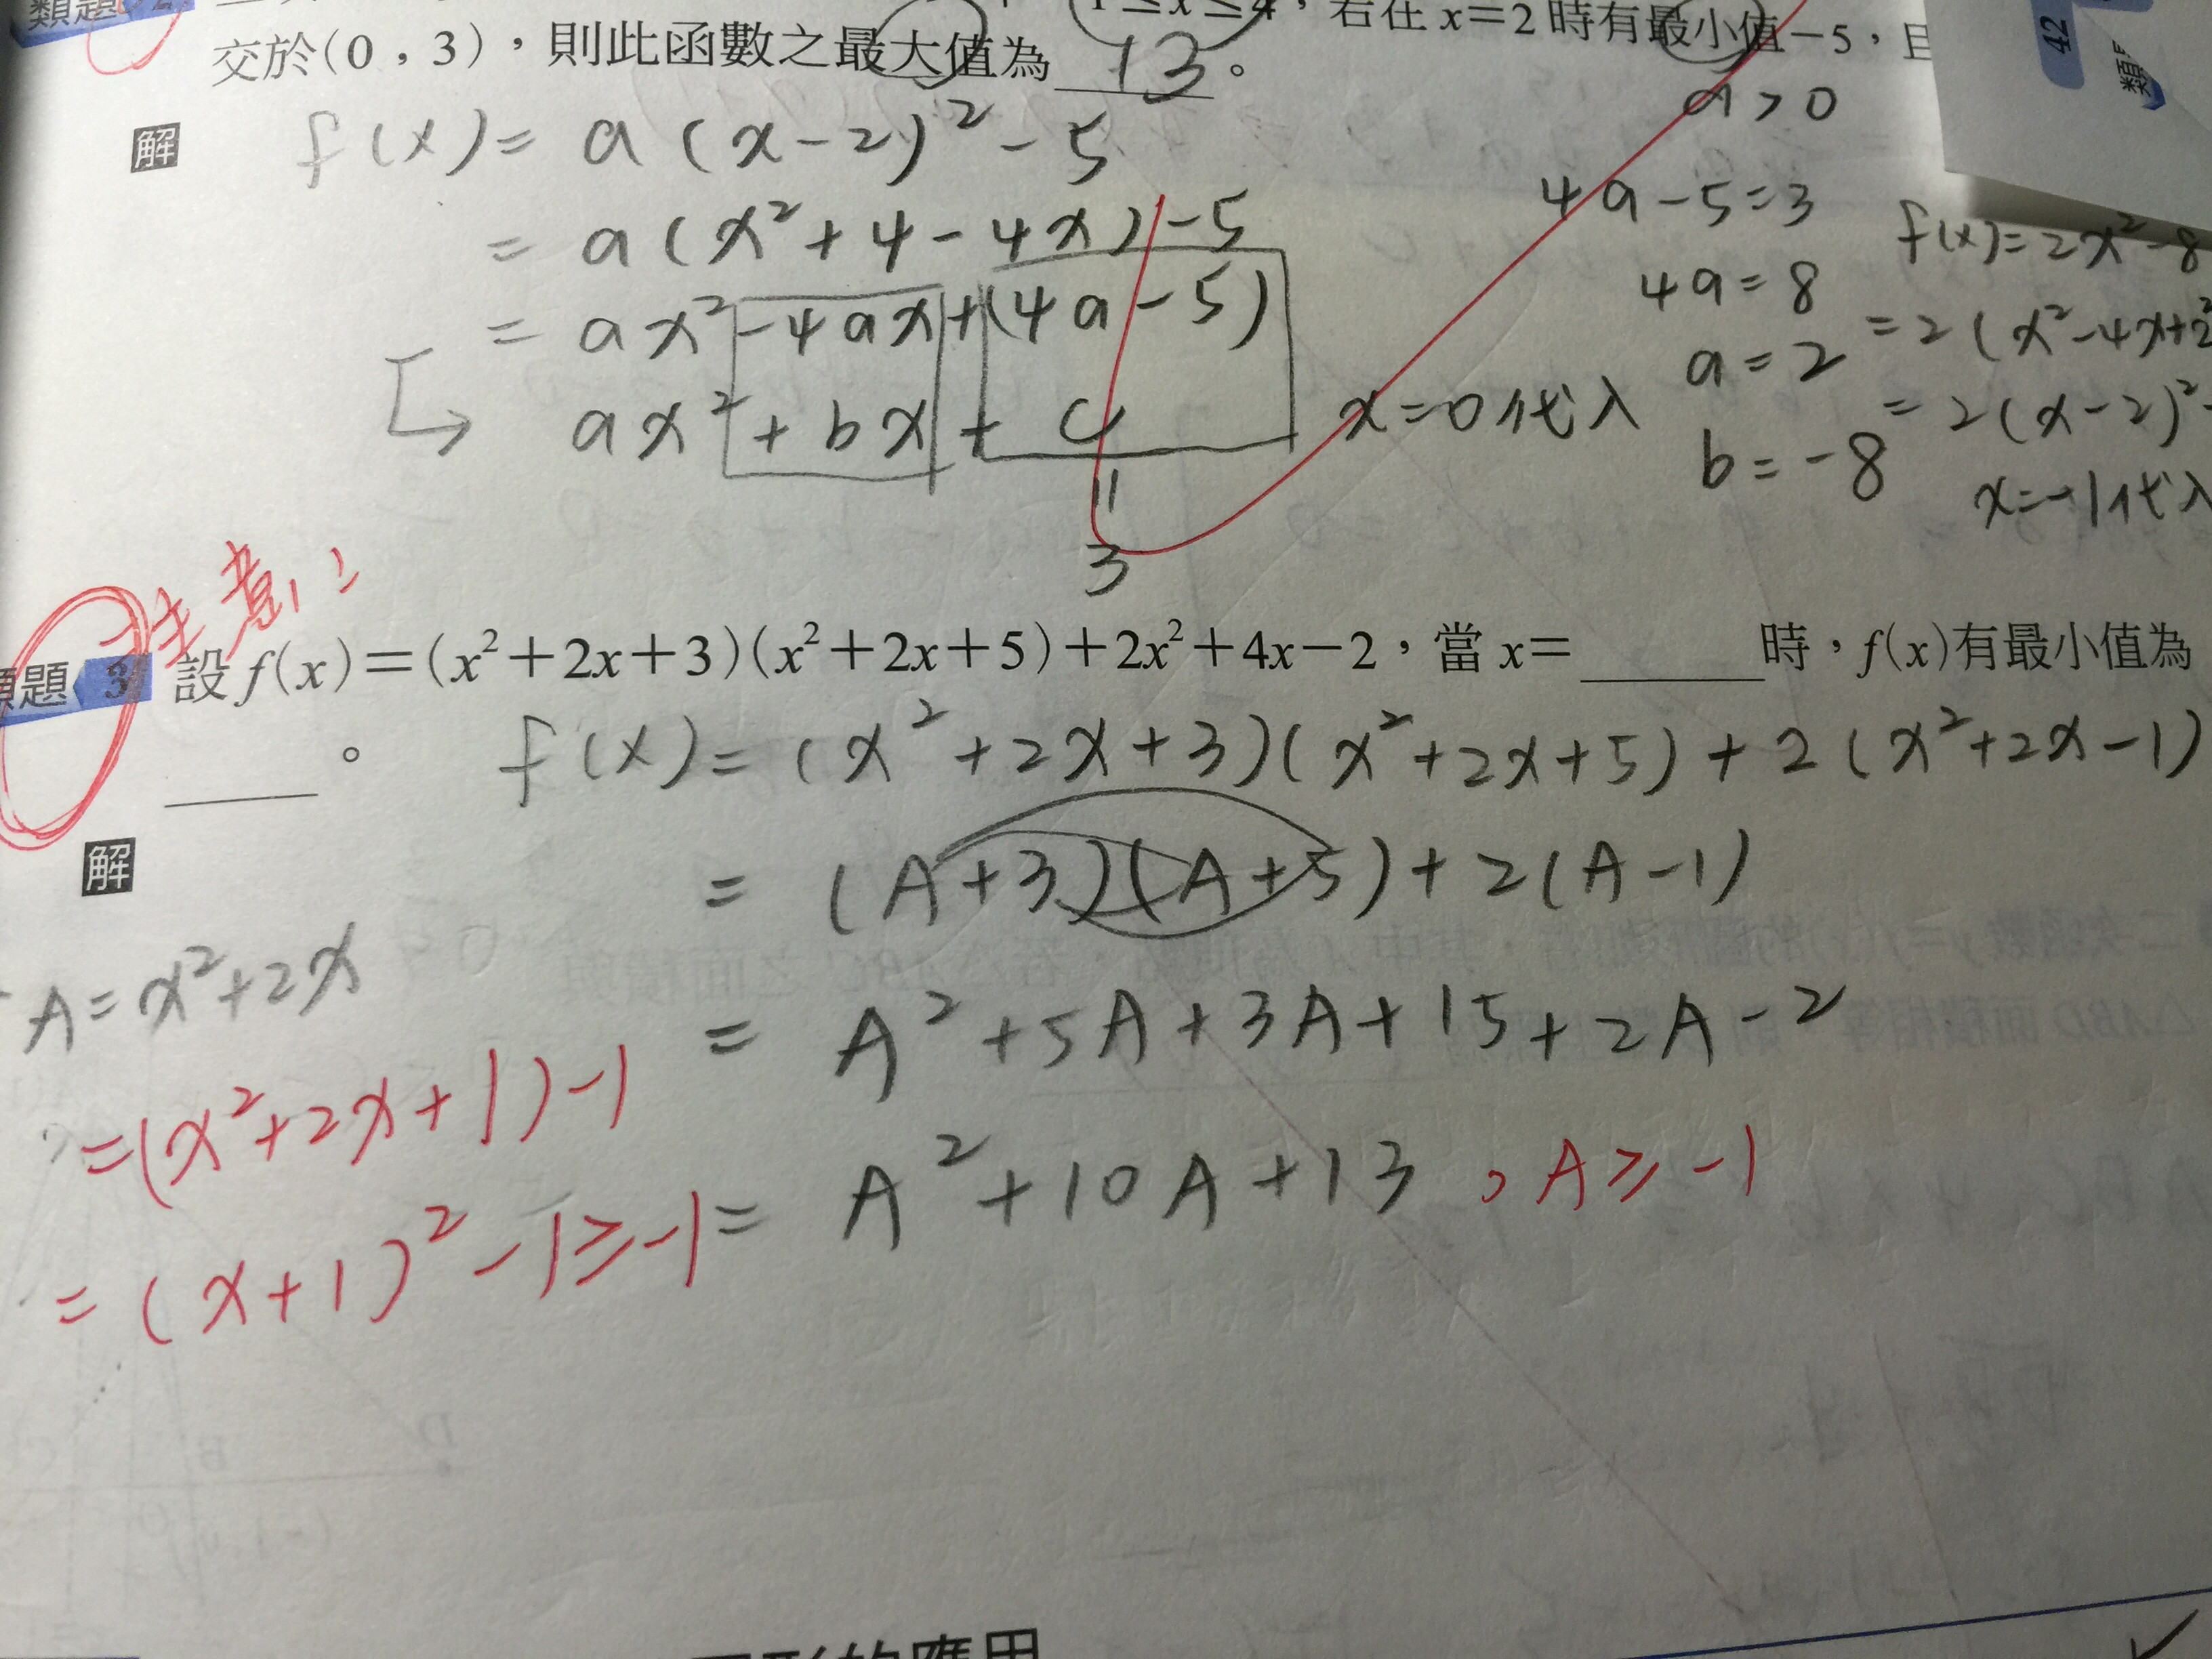 類題 2
1≤x≤4,若在 x=2 時有最小值-5,且
42
類
交於(0,3),則此函數之最大值為 13 。
a>0
解 f(x)= a(x-2)²-5
= a(x²+4-4x)-5
4a-5=3
f(x)=2x²-8
= ax²-4ax+(4a-5)
4a=8
=2(x²-4x+2²
a=2
ax²+bx+c
x=0代入
=2(x-2)²-
b=-8
x=-1代入
=
3
注意!!
類題 3 設 f(x)=(x²+2x+3)(x²+2x+5)+2x²+4x-2,當 x= 時,f(x)有最小值為
。
f(x)=(x²+2x+3)(x²+2x+5)+2(x²+2x-1)
解
=(A+3)(A+5)+2(A-1)
A=x²+2x
= A²+5A+3A+15+2A-2
=(x²+2x+1)-1
= A²+10A+13 , A≥-1
=(x+1)²-1≥-1
的應用